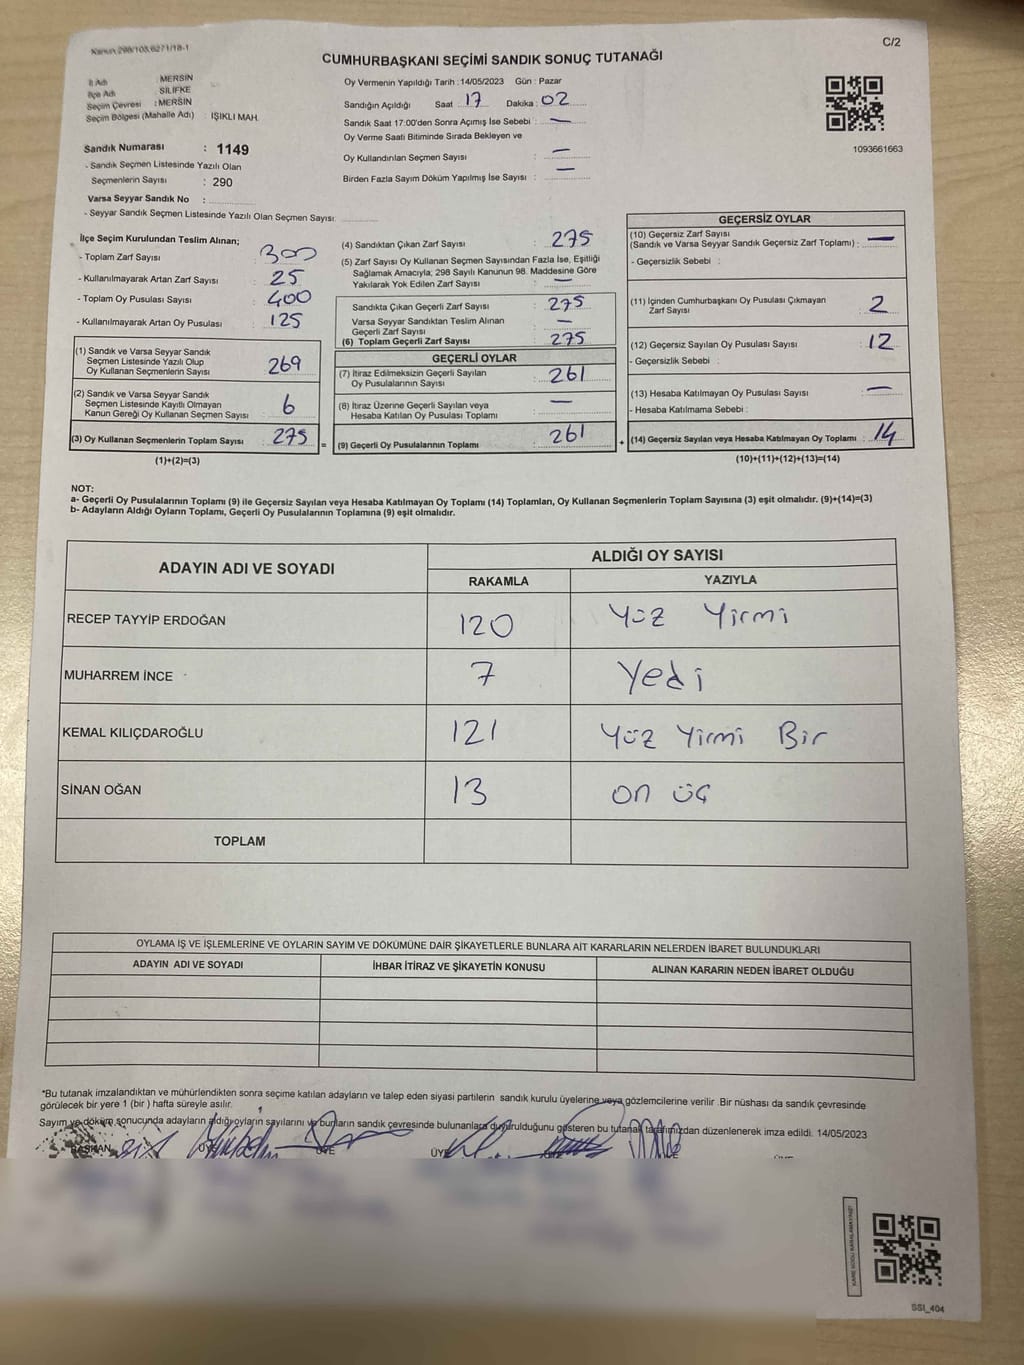 Kanun:298/103,6271/18-1
C/2
CUMHURBAŞKANI SEÇİMİ SANDIK SONUÇ TUTANAĞI
İl Adı : MERSİN
İlçe Adı SİLİFKE
Seçim Çevresi : MERSİN
Seçim Bölgesi (Mahalle Adı) : IŞIKLI MAH.
Sandık Numarası : 1149
- Sandık Seçmen Listesinde Yazılı Olan
Seçmenlerin Sayısı : 290
Varsa Seyyar Sandık No :
- Seyyar Sandık Seçmen Listesinde Yazılı Olan Seçmen Sayısı
Oy Vermenin Yapıldığı Tarih : 14/05/2023 Gün : Pazar
Sandığın Açıldığı Saat 17 Dakika : 02
Sandık Saat 17:00'den Sonra Açımış İse Sebebi : —
Oy Verme Saati Bitiminde Sırada Bekleyen ve
Oy Kullandırılan Seçmen Sayısı : —
Birden Fazla Sayım Döküm Yapılmış İse Sayısı : —
1093661663
İlçe Seçim Kurulundan Teslim Alınan;
- Toplam Zarf Sayısı : 300
- Kullanılmayarak Artan Zarf Sayısı : 25
- Toplam Oy Pusulası Sayısı : 400
- Kullanılmayarak Artan Oy Pusulası : 125
(1) Sandık ve Varsa Seyyar Sandık
Seçmen Listesinde Yazılı Olup
Oy Kullanan Seçmenlerin Sayısı : 269
(2) Sandık ve Varsa Seyyar Sandık
Seçmen Listesinde Kayıtlı Olmayan
Kanun Gereği Oy Kullanan Seçmen Sayısı : 6
(3) Oy Kullanan Seçmenlerin Toplam Sayısı : 275
(1)+(2)=(3)
(4) Sandıktan Çıkan Zarf Sayısı : 275
(5) Zarf Sayısı Oy Kullanan Seçmen Sayısından Fazla İse, Eşitliği
Sağlamak Amacıyla; 298 Sayılı Kanunun 98. Maddesine Göre
Yakılarak Yok Edilen Zarf Sayısı : —
Sandıkta Çıkan Geçerli Zarf Sayısı : 275
Varsa Seyyar Sandıktan Teslim Alınan
Geçerli Zarf Sayısı : —
(6) Toplam Geçerli Zarf Sayısı : 275
GEÇERLİ OYLAR
(7) İtiraz Edilmeksizin Geçerli Sayılan
Oy Pusulalarının Sayısı : 261
(8) İtiraz Üzerine Geçerli Sayılan veya
Hesaba Katılan Oy Pusulası Toplamı : —
= (9) Geçerli Oy Pusulalarının Toplamı : 261
GEÇERSİZ OYLAR
(10) Geçersiz Zarf Sayısı
(Sandık ve Varsa Seyyar Sandık Geçersiz Zarf Toplamı) : —
- Geçersizlik Sebebi :
(11) İçinden Cumhurbaşkanı Oy Pusulası Çıkmayan
Zarf Sayısı : 2
(12) Geçersiz Sayılan Oy Pusulası Sayısı : 12
- Geçersizlik Sebebi :
(13) Hesaba Katılmayan Oy Pusulası Sayısı : —
- Hesaba Katılmama Sebebi :
+ (14) Geçersiz Sayılan veya Hesaba Katılmayan Oy Toplamı : 14
(10)+(11)+(12)+(13)=(14)
NOT:
a- Geçerli Oy Pusulalarının Toplamı (9) ile Geçersiz Sayılan veya Hesaba Katılmayan Oy Toplamı (14) Toplamları, Oy Kullanan Seçmenlerin Toplam Sayısına (3) eşit olmalıdır. (9)+(14)=(3)
b- Adayların Aldığı Oyların Toplamı, Geçerli Oy Pusulalarının Toplamına (9) eşit olmalıdır.
ADAYIN ADI VE SOYADI ALDIĞI OY SAYISI
RAKAMLA YAZIYLA
RECEP TAYYİP ERDOĞAN 120 Yüz Yirmi
MUHARREM İNCE 7 Yedi
KEMAL KILIÇDAROĞLU 121 Yüz Yirmi Bir
SİNAN OĞAN 13 on üç
TOPLAM
OYLAMA İŞ VE İŞLEMLERİNE VE OYLARIN SAYIM VE DÖKÜMÜNE DAİR ŞİKAYETLERLE BUNLARA AİT KARARLARIN NELERDEN İBARET BULUNDUKLARI
ADAYIN ADI VE SOYADI İHBAR İTİRAZ VE ŞİKAYETİN KONUSU ALINAN KARARIN NEDEN İBARET OLDUĞU
*Bu tutanak imzalandıktan ve mühürlendikten sonra seçime katılan adayların ve talep eden siyasi partilerin sandık kurulu üyelerine veya gözlemcilerine verilir .Bir nüshası da sandık çevresinde
görülecek bir yere 1 (bir ) hafta süreyle asılır.
Sayım ve döküm sonucunda adayların aldığı oyların sayılarını ve bunların sandık çevresinde bulunanlara duyurulduğunu gösteren bu tutanak tarafımızdan düzenlenerek imza edildi. 14/05/2023
BAŞKAN ÜYE ÜYE ÜYE
SSI_404